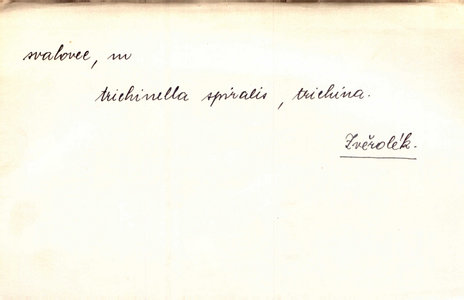 svalovec, m
trichinella spiralis, trichina.
Zvěrolék.